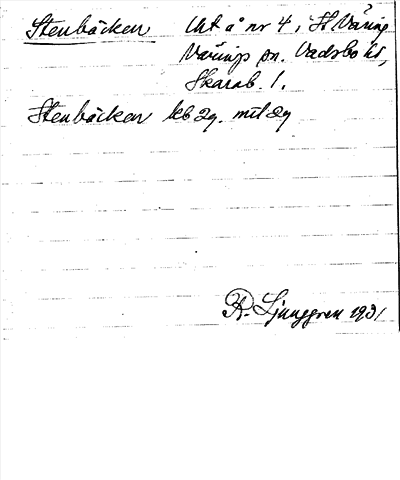 Stenbäcken Urt å nr 4, St Väring
Värings sn. Vadsbo hd,
Skarab. l.
Stenbäcken kb 2g. mtl 2g
R. Ljunggren 1931